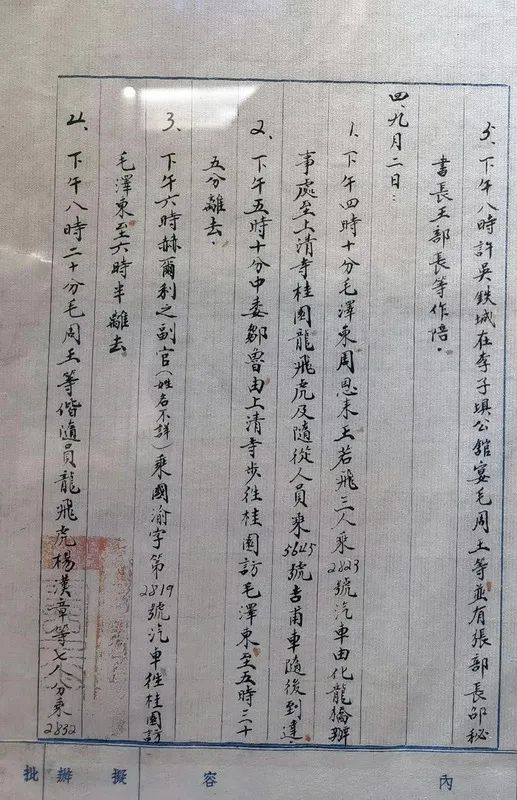 5、下午八時許吳鉄城在李子壩公舘宴毛周王等並有張部長邵秘
書長王部長等作陪。
四、九月二日：
1、下午四時十分毛澤東周恩来王若飛三人乘2823號汽車由化龍橋辦
事處至上清寺桂園龍飛虎及隨從人員乘5645號吉甫車隨後到達。
2、下午五時十分中委鄒魯由上清寺步往桂園訪毛澤東至五時三十
五分離去。
3、下午六時赫爾利之副官(姓名不詳)乘國渝字第2819號汽車徃桂園訪
毛澤東至六時半離去
4、下午八時二十分毛周王等偕隨員龍飛虎楊漢章等七人分乘2832
內容
擬辦
批